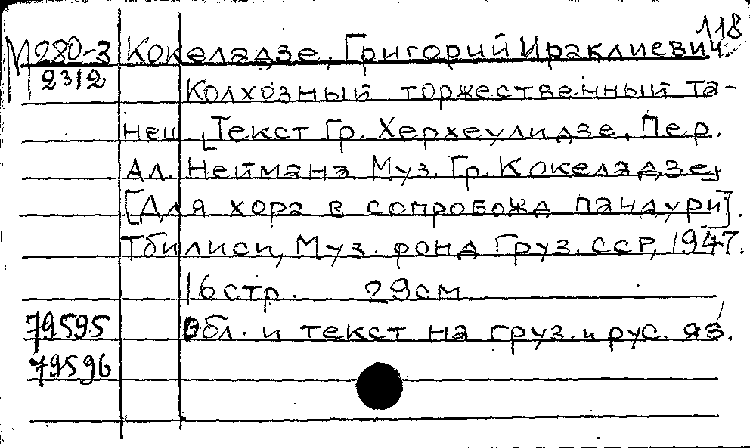 118
М280-3 Кокеладзе, Григорий Ираклиевич.
2312 Колхозный торжественный та-
нец [Текст Гр. Херхеулидзе, Пер.
Ал. Неймана Муз. Гр. Кокеладзе,
[Для хора в сопробожд пандури].
Тбилиси, Муз. фонд Груз. ССР, 1947.
16 стр. 29 см
79595 Обл. и текст на груз. и рус. яз.
79596